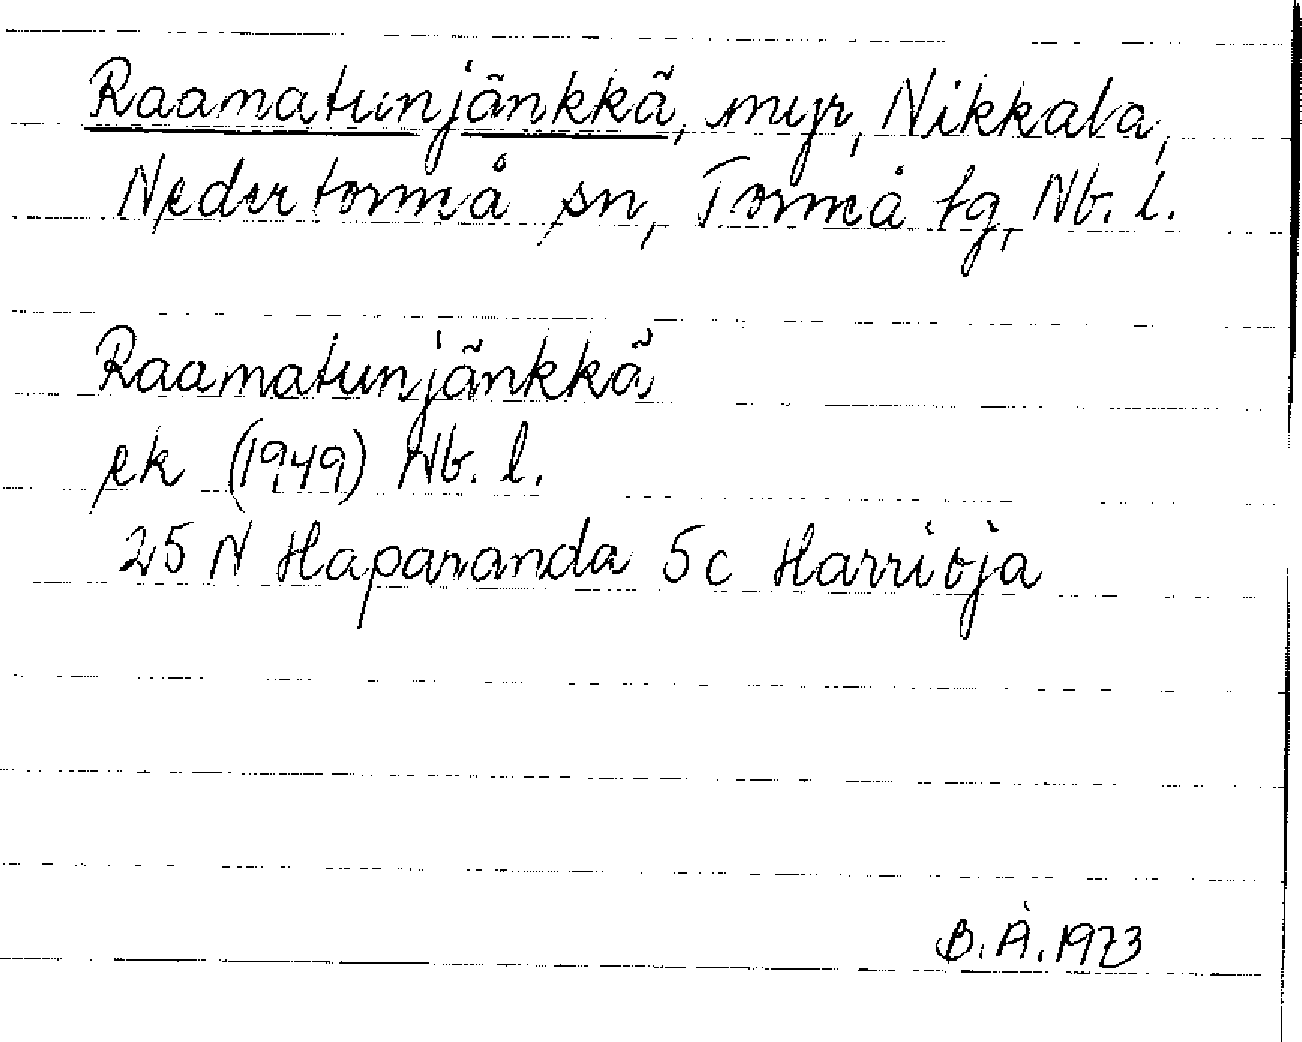 Raamatunjänkkä, myr, Nikkala,
Nedertorneå sn, Torneå tg, Nb. l.
Raamatunjänkkä
ek (1949) Nb. l.
25 N Haparanda 5c Harrioja
B.Å. 1973